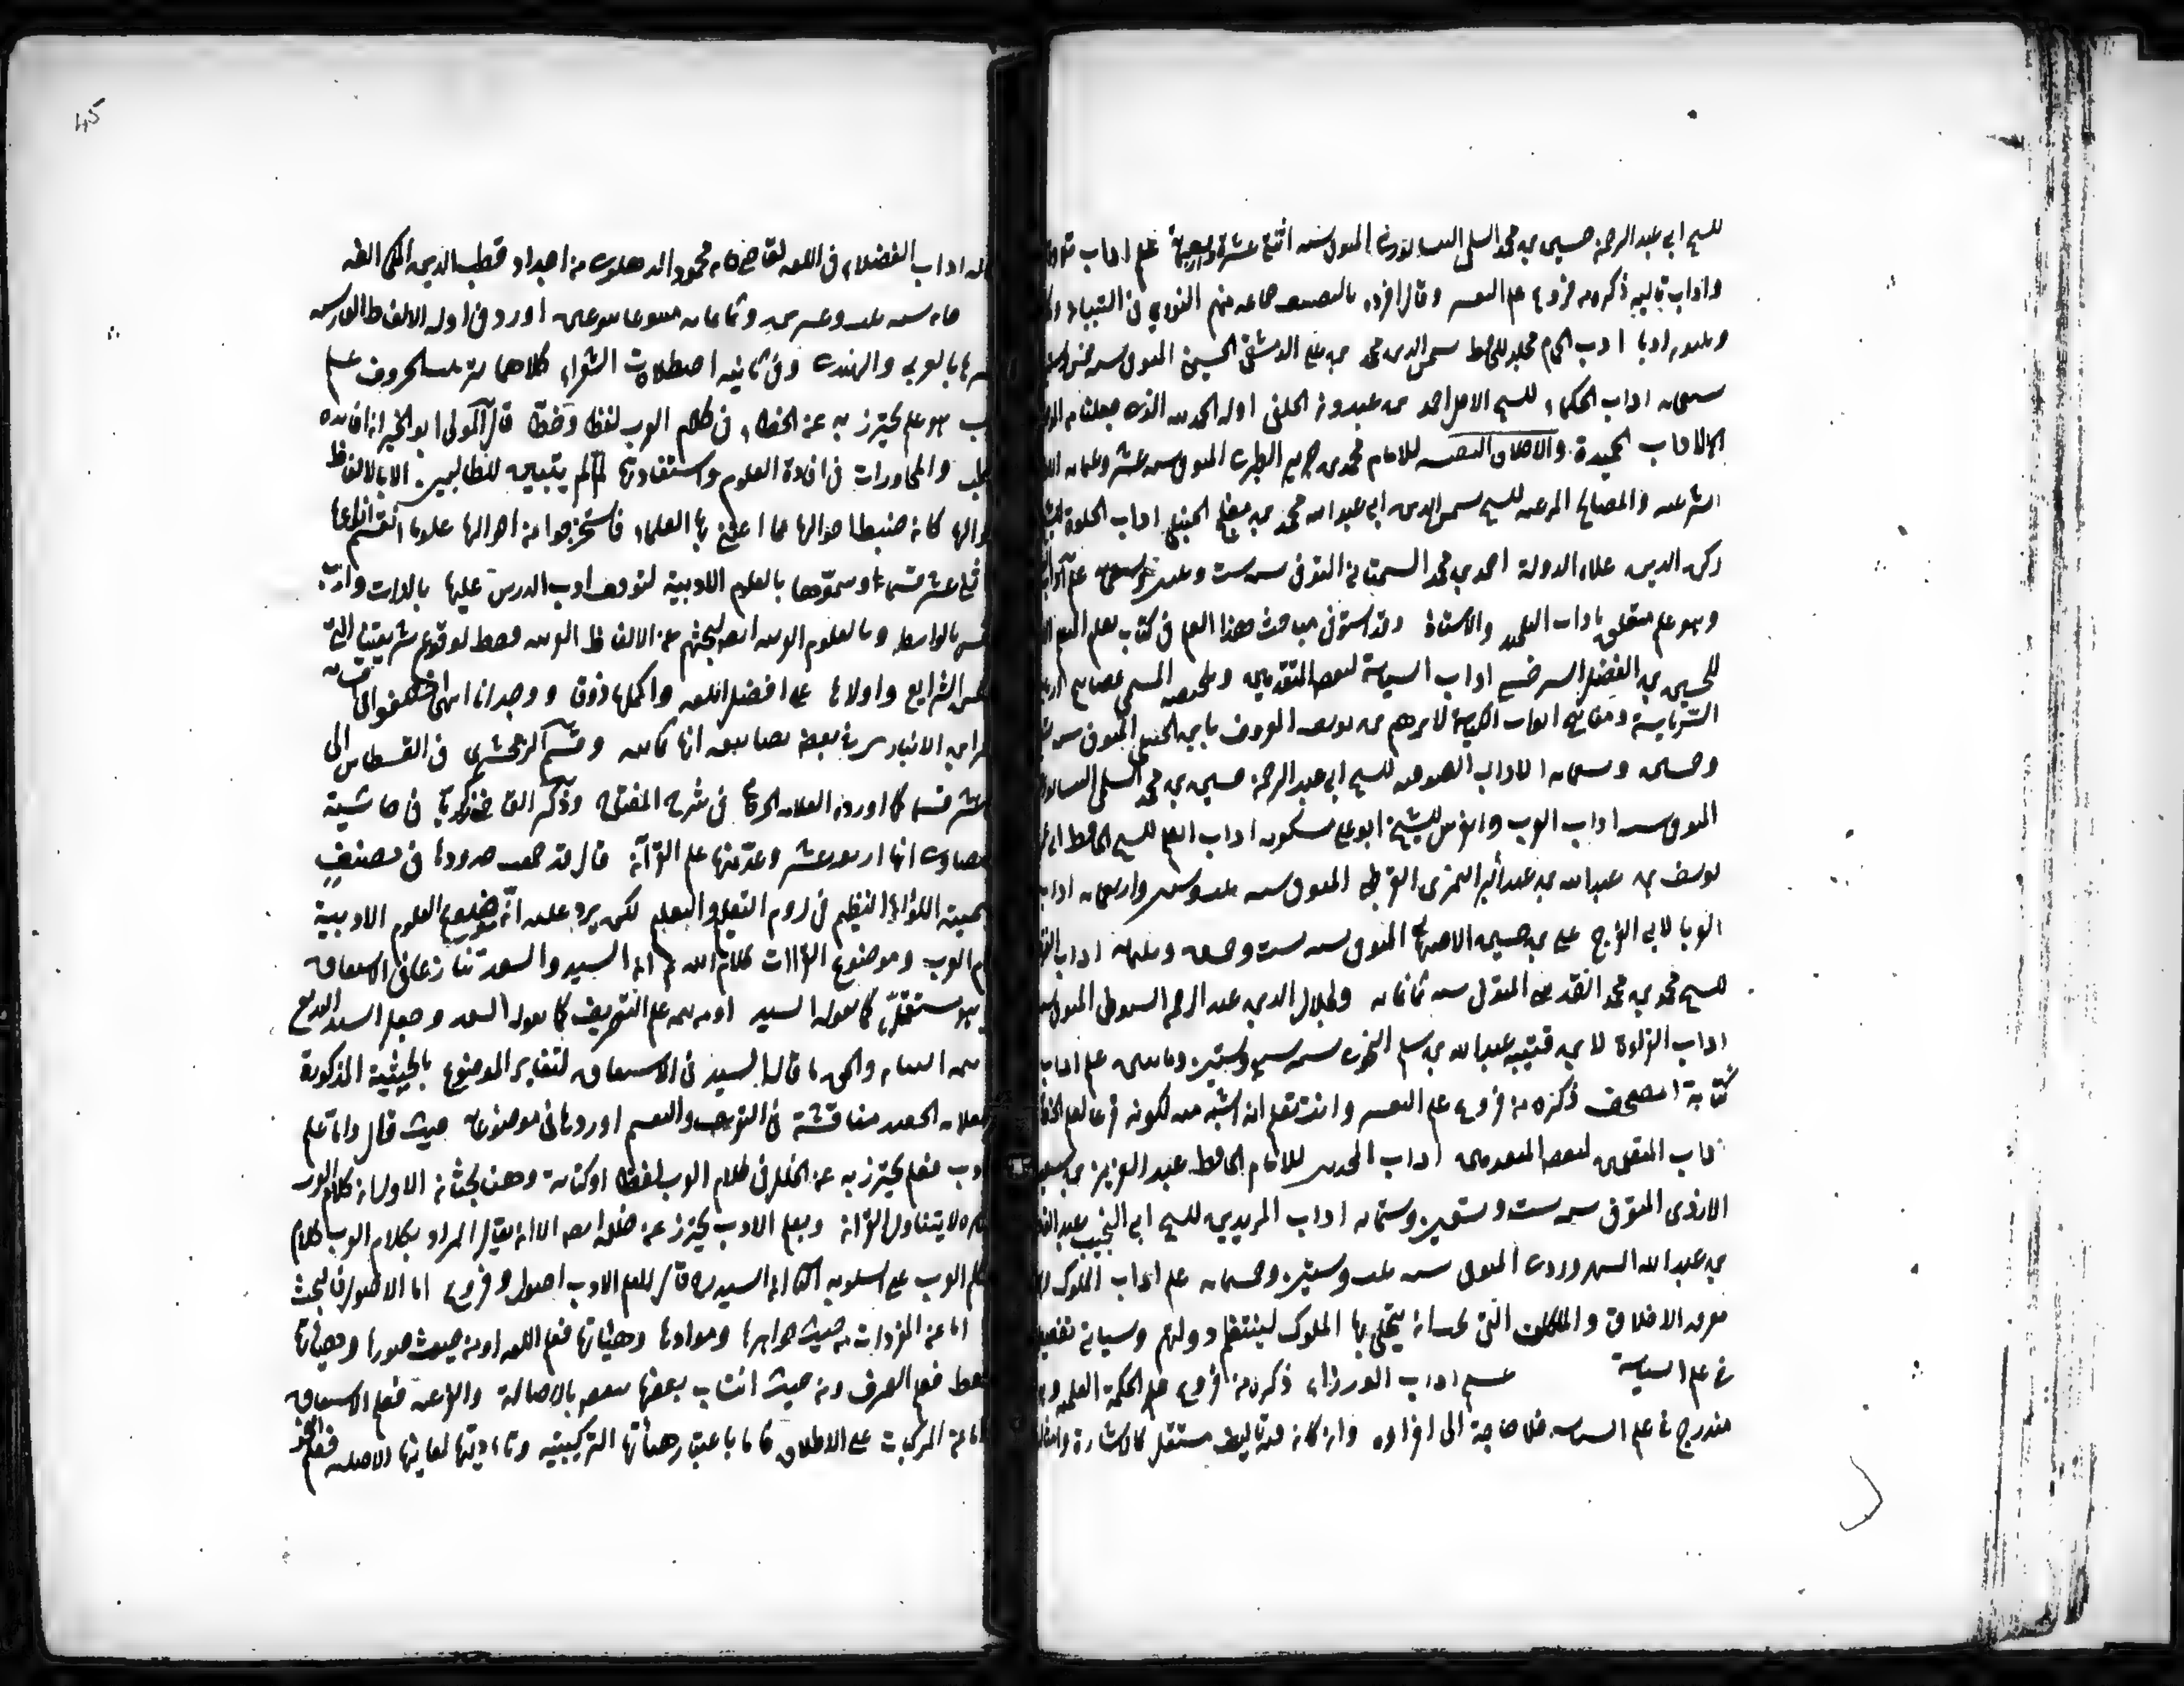 للشيخ ابي عبد الرحمن حسين بن محمد السلمي النيسابوري المتوفى سنة اثنتي عشرة واربعمائة علم اداب تلاوة
واداب تاليه ذكره من فروع علم التفسير وقال افرده بالتصنيف جماعة منهم النووي في التبيان
ادب الحمام مجلد للحافظ شمس الدين محمد بن علي الدمشقي الحسيني المتوفى سنة خمس
اداب الحكماء للشيخ الاجل احمد بن عبدون الحلبي اوله الحمد لله الذي جعلنا
الاداب الحميدة والاخلاق النفيسة للامام محمد بن جرير الطبري المتوفى سنة عشر وثلثمائة
الشرعية والمصالح المرعية للشيخ شمس الدين ابي عبد الله محمد بن مفلح الحنبلي اداب الخلوة
ركن الدين علاء الدولة احمد بن محمد السمناني المتوفى سنة ست وثلثين وسبعمائة علم آداب
وهو علم متعلق باداب التلميذ والاستاذ وقد استوفى مباحث هذا العلم في كتاب تعليم المتعلم
للحسين بن الفضل السرخسي اداب السياسة لبعض المتقدمين وملخصه المسمى بمصابيح ارباب
الرياسة ومفاتيح ابواب الكياسة لابرهيم بن يوسف المعروف بابن الحنبلي المتوفى سنة
وخمسين وتسعمائة الاداب الصوفية للشيخ ابي عبد الرحمن حسين بن محمد السلمي النيسابوري
المتوفى سنة اداب العرب والفرس للشيخ ابو علي مسكويه اداب العلم للشيخ الحافظ ابي عمر
يوسف بن عبد الله بن عبد البر النمري القرطبي المتوفى سنة ثلث وستين واربعمائة اداب
الغربا لابي الفرج علي بن حسين الاصبهاني المتوفى سنة ست وخمسين وثلثمائة اداب
للشيخ محمد بن محمد المقدسي المتوفى سنة ثمانمائة ولجلال الدين عبد الرحمن السيوطي المتوفى سنة
اداب القراءة لابن قتيبة عبد الله بن مسلم النحوي سنة سبع وستين ومايتين علم اداب
كتابة المصحف ذكره من فروع علم التفسير وانت تعلم انه اشبه منه لكونه فرعا لعلم الخط
اداب المتعلمين لبعض المتقدمين اداب المحدث للامام الحافظ عبد الغني بن سعيد
الازدي المتوفى سنة ست وستين وستمائة اداب المريدين للشيخ ابي النجيب عبد القاهر
بن عبد الله السهروردي المتوفى سنة ثلث وستين وخمسمائة علم اداب الملوك
معرفة الاخلاق والملكات التي يجب ان يتحلى بها الملوك لينتظم دولتهم وسياتي تفصيله
في علم السياسة علم اداب الوزراء ذكره من فروع علم الحكمة العملية وهو
مندرج في علم السياسة فلا حاجة الى افراده وان كان فيه تاليف مستقل كالاشارة وامثاله
45
اداب الفضلاء في اللغة لقاضي خان محمود الدهلوي من اجداد قطب الدين المكي الفه
سنة ثلث وعشرين وثمانمائة اورد في اوله الالفاظ الفارسية
بالعربي والهندي وفي ثانيه اصطلاحات الشعراء كلاهما بترتيب الحروف علم
هو علم يحترز به عن الخطاء في كلام العرب لفظا وخطا قال المولى ابو الخير ان فائدة
والمحاورات في افادة العلوم واستفادتها لما لم يتبين للطالبين الا بالالفاظ
كان ضبط احوالها مما اعتنى بها العلماء فاستخرجوا من احوالها علوما انقسم انواعها
عشر قسما وسموها بالعلوم الادبية لتوقف ادب الدرس عليها بالذات وادب
بالواسطة وبالعلوم العربية ايضا لبحثهم عن الالفاظ العربية فقط لوقوع شريعتنا التي
الشرايع واولاها على افضل اللغة واكملها ذوقا ووجدانا انتهى
ابن الانباري في بعض تصانيفه انها ثمانية وقسم الزمخشري في القسطاس الى
عشر قسما كما اورده العلامة الجرجاني في شرح المفتاح وذكر القاضي زكريا في حاشية
البيضاوي انها اربعة عشر وعد منها علم القرآن قال قد جمعت حدودها في مصنف
سميته اللؤلؤ النظيم في روم التعلم والتعليم لكن يرد عليه ان موضوع العلوم الادبية
كلام العرب وموضوع القرآات كلام الله ثم ان السيد والسعد تنازعا في الاشتقاق
هو مستقل كما يقوله السيد او من تتمة علم التصريف كما يقوله السعد وجعل السيد البديع
تتمة البيان والحق ما قال السيد في الاشتقاق لتغاير الموضوع بالحيثية المذكورة
مناقشة في التعريف والتقسيم اوردها في موضوعاته حيث قال واما علم
الادب فعلم يحترز به عن الخلل في كلام العرب لفظا او كتابة وههنا بحثان الاول ان كلام العرب
لا يتناول القران وبعلم الادب يحترز عن خلله ايضا الا ان يقال المراد بكلام العرب كلام
العرب على اسلوبه السيد قال لعلم الادب اصول وفروع اما الاصول فالبحث
اما عن المفردات من حيث جواهرها وموادها وهيئاتها فعلم اللغة او من حيث صورها وهيئاتها
فقط فعلم الصرف ومن حيث انتساب بعضها ببعض بالاصالة والفرعية فعلم الاشتقاق
واما عن المركبات على الاطلاق فاما باعتبار هيئاتها التركيبية وتاديتها لمعانيها الاصلية فعلم النحو